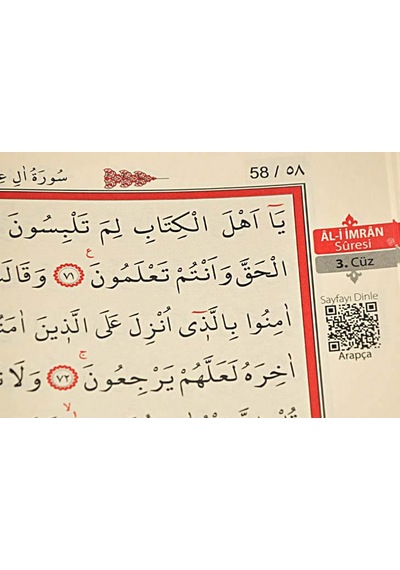 سُورَةُ اٰلِ
58 / ٥٨
يَٓا اَهْلَ الْكِتَابِ لِمَ تَلْبِسُونَ
الْحَقَّ وَاَنْتُمْ تَعْلَمُونَ ع ٧١ وَقَالَتْ
اٰمِنُوا بِالَّذ۪ٓي اُنْزِلَ عَلَى الَّذ۪ينَ اٰمَنُ
اٰخِرَهُ لَعَلَّهُمْ يَرْجِعُونَ ج ٧٢ وَلَا
ÂL-İ İMRÂN
Sûresi
3. Cüz
Sayfayı Dinle
Arapça